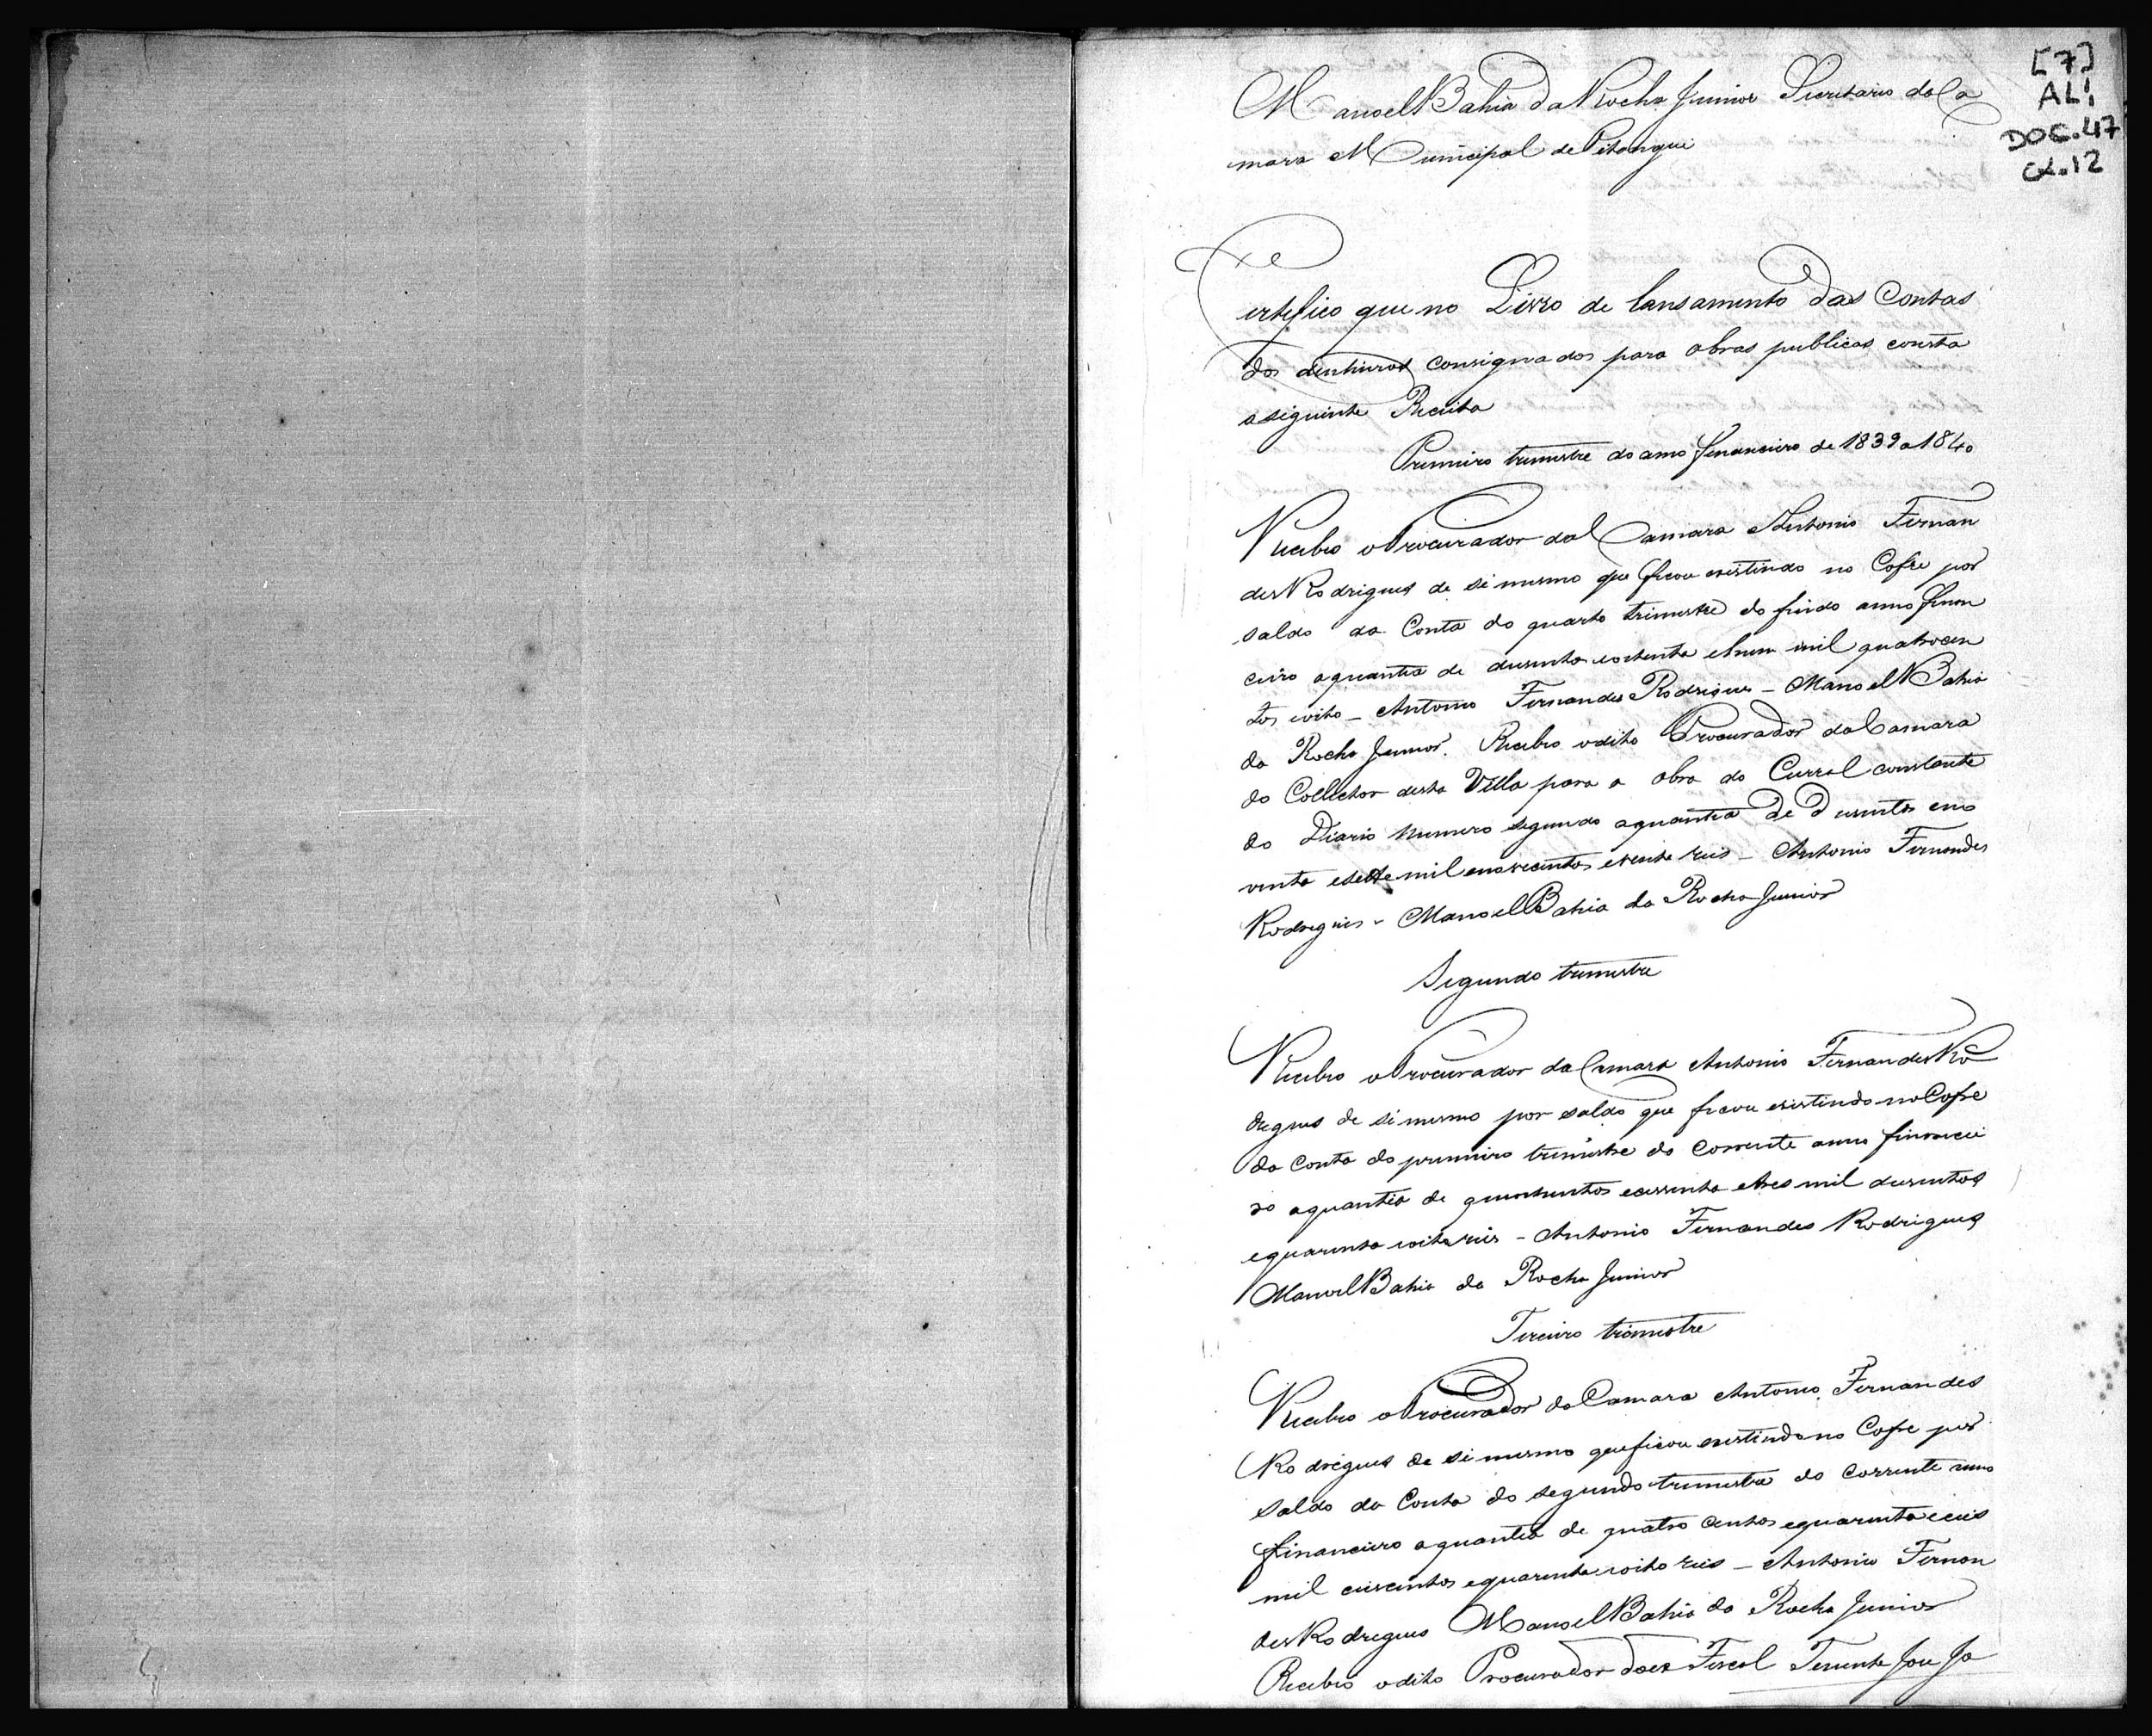 [7]
AL!
DOC.47
CX.12
Manoel Bahia da Rocha Junior Secretario da Ca
mara Municipal de Pitangui
Certefico que no Livro de lansamento das Contas
dos dinheiros consignados para obras publicas consta
a siguinte Receita
Primeiro trimestre do anno financeiro de 1839 a 1840
Recebeo o Procurador da Camara Antonio Fernan
des Rodrigues de si mesmo que ficou existindo no Cofre por
saldo da Conta do quarto trimestre do findo anno finan
ceiro a quantia de dusentos e oitenta e hum mil quatrocen
tos e oito - Antonio Fernandes Rodrigues - Manoel Bahia
da Rocha Junior. Recebeo o dito Procurador da Camara
do Collector desta Villa para a obra do Curral constante
do Diario numero segundo a quantia de dusentos e no
venta e sette mil e novecentos e vinte reis - Antonio Fernandes
Rodrigues - Manoel Bahia da Rocha Junior
Segundo trimestre
Recebeo o Procurador da Camara Antonio Fernandes Ro
drigues de si mesmo por saldo que ficou existindo no Cofre
da Conta do primeiro trimestre do corrente anno financei
ro a quantia de quinhentos e sessenta e tres mil dusentos
e quarenta e oito reis - Antonio Fernandes Rodrigues
Manoel Bahia da Rocha Junior
Terceiro trimestre
Recebeo o Procurador da Camara Antonio Fernandes
Rodrigues de si mesmo que ficou existindo no Cofre por
saldo da Conta do segundo trimestre do corrente anno
financeiro a quantia de quatro centos e quarenta e seis
mil e seiscentos e quarenta e oito reis - Antonio Fernan
des Rodrigues Manoel Bahia da Rocha Junior
Recebeo o dito Procurador do ex Fiscal Tenente Jose Jo